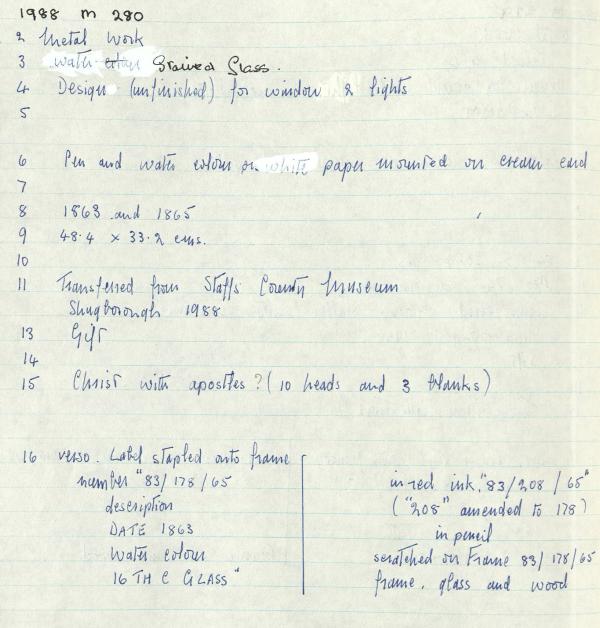 1988 m 280
2 Metal Work
3 water Stained Glass.
4 Design (unfinished) for window 2 lights
5
6 Pen and water colour on white paper mounted on cream card
7
8 1863 and 1865
9 48.4 x 33.2 cms.
10
11 Transferred from Staffs County Museum
Shugborough 1988
13 Gift
14
15 Christ with apostles? (10 heads and 3 blanks)
16 verso. Label stapled onto frame
number "83/178/65
description
DATE 1863
Water colour
16 TH C GLASS"
in red ink "83/208/65"
("208" amended to 178)
in pencil
scratched on Frame 83/178/65
frame. glass and wood